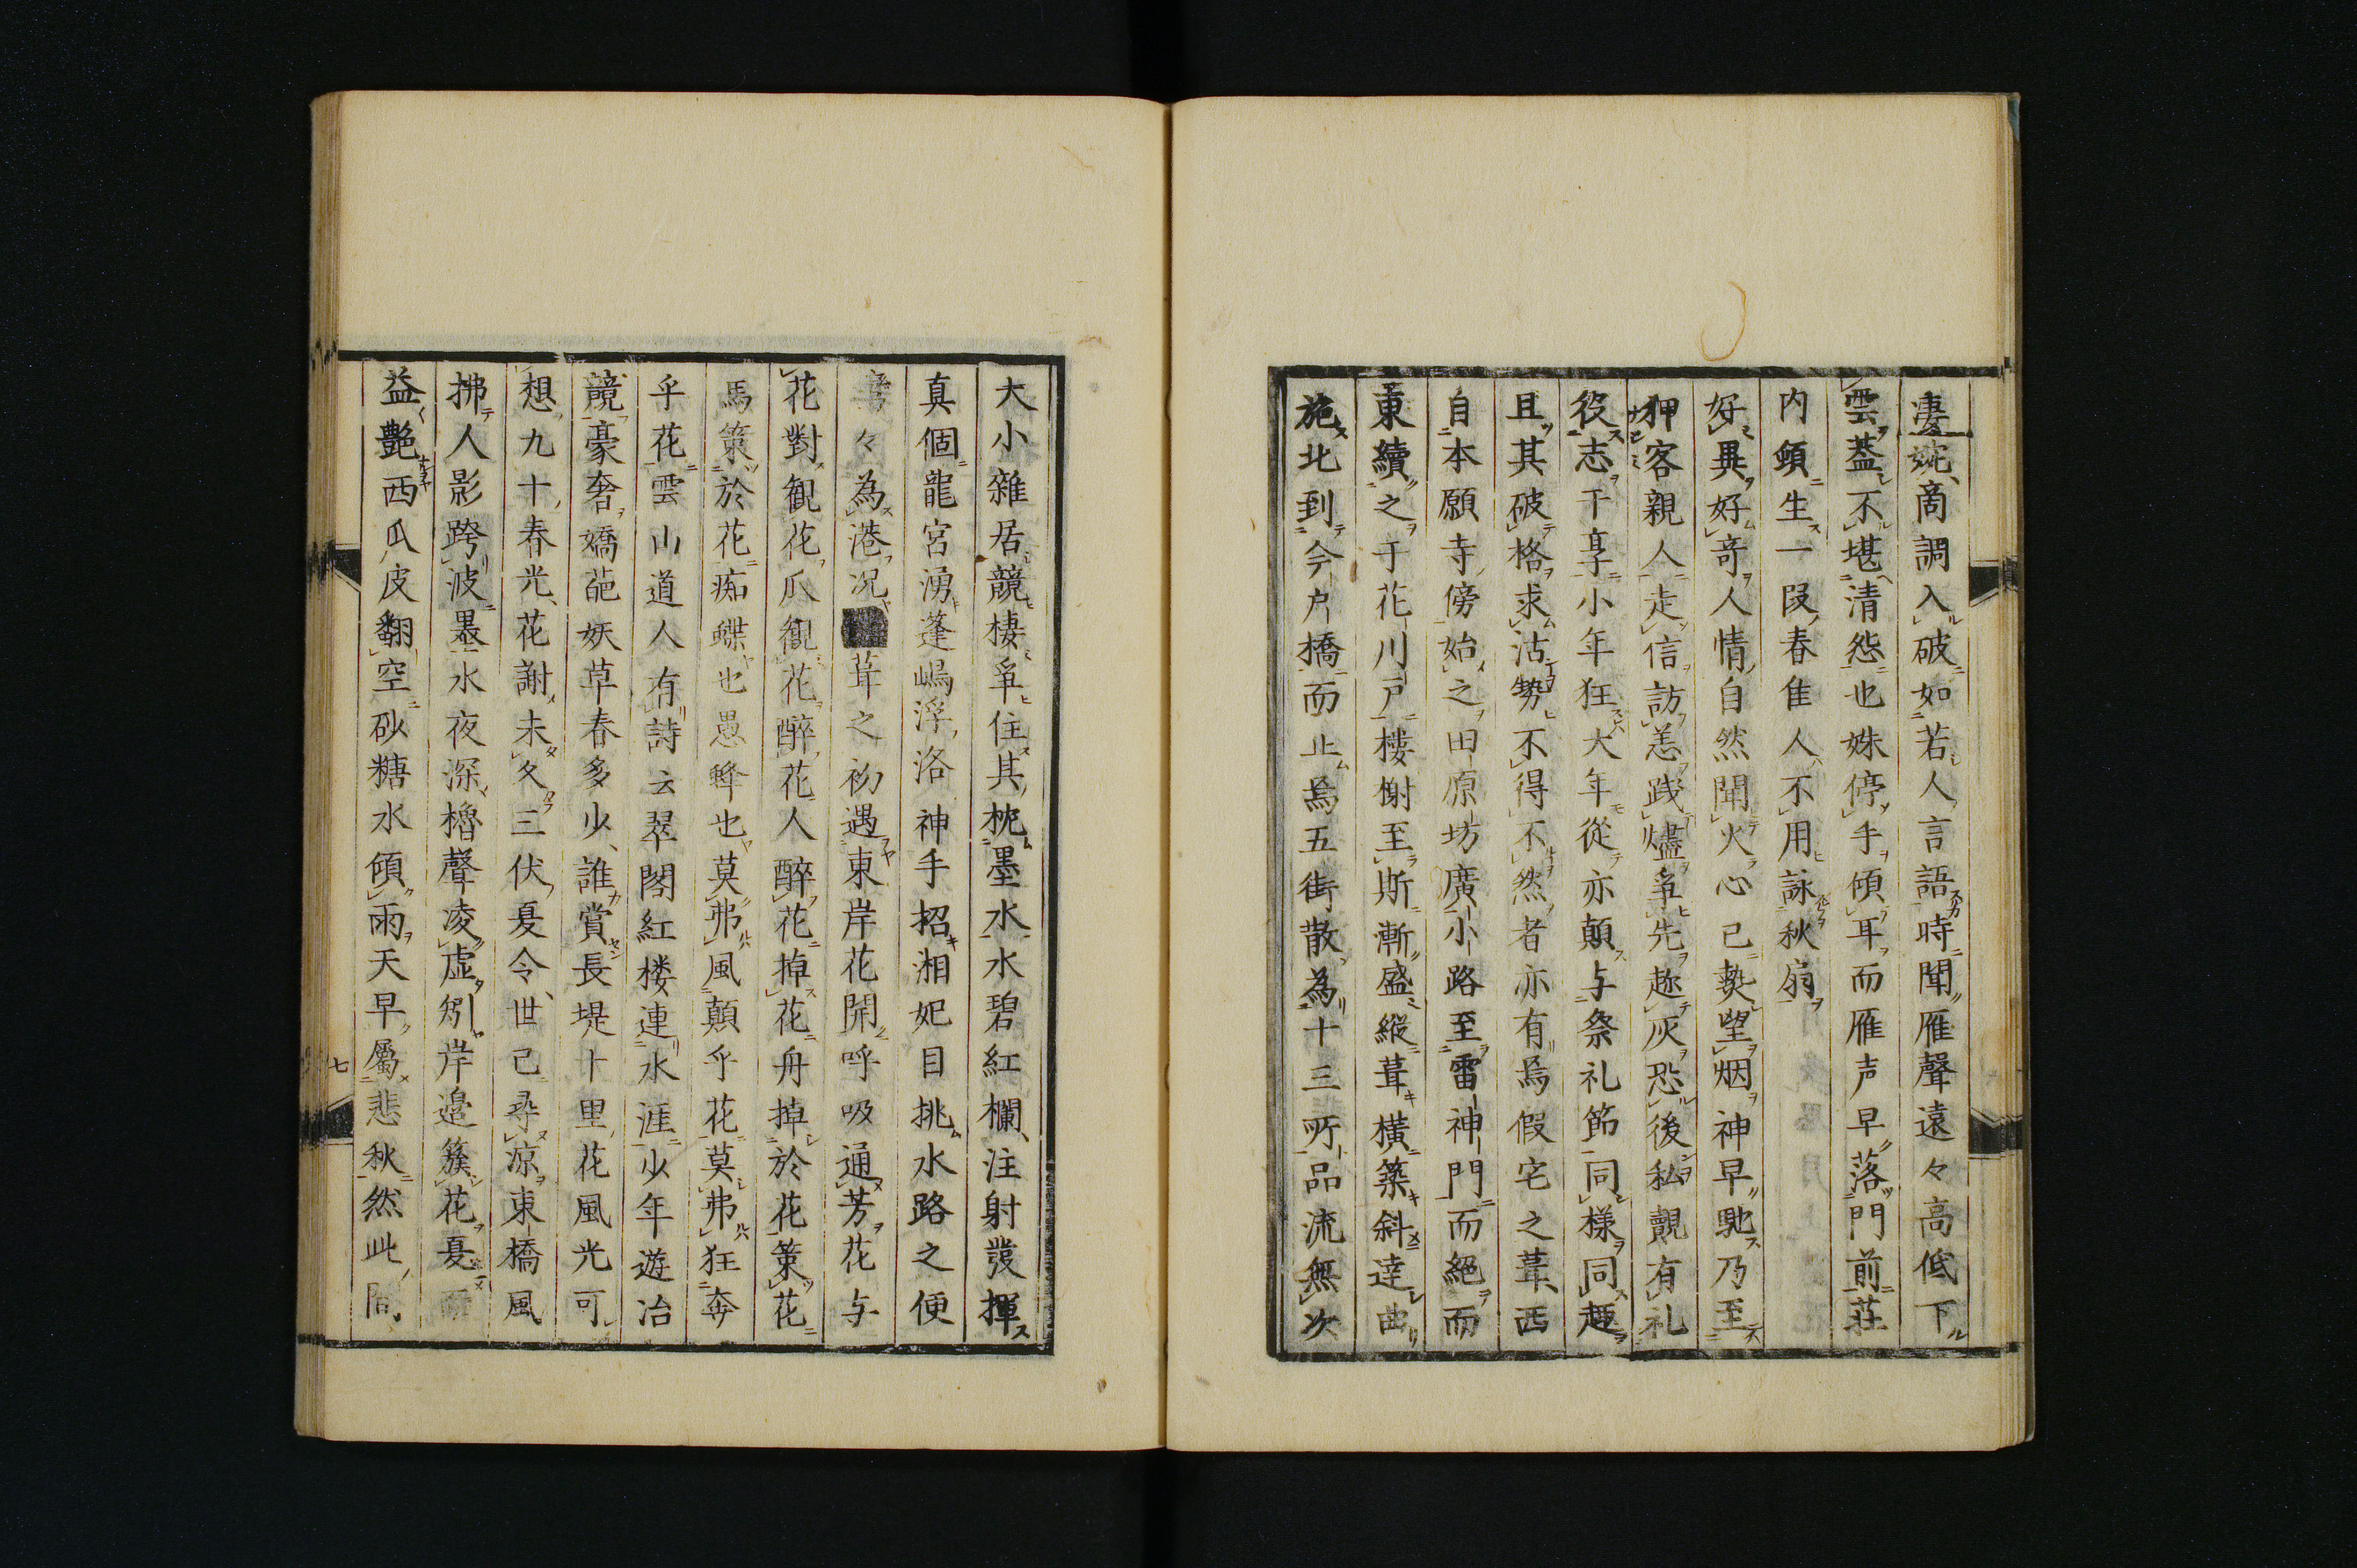 凄婉、商調入破如若人言語時聞雁聲遠々高低下
雲蓋不堪清怨也姝停手傾耳而雁声早落門前荘
内頭生一段春隹人不用詠秋扇
好異好竒人情自然聞火心已熱望烟神早馳乃至
狎客親人走信訪恙践燼爭先趂灰恐後私覿有礼
役志于享小年狂大年從亦顛与祭礼節同様同趣
且其破格求沽勢不得不然者亦有為假宅之葺、西
自本願寺傍始之田原坊廣小路至雷神門而絕而
東續之于花川戸樓榭至斯漸盛縦葺横築斜達曲
施北到今戸橋而止為五街散為十三所品流無次
大小雜居競棲爭住其枕墨水水碧紅欄注射發揮
真個龍宮湧蓬嶋浮洛神手招湘妃目挑水路之便
々為港况葺之初遇東岸花開呼吸通芳花与
花對観花爪觀花醉花人醉花掉花舟掉於花策花
馬策於花痴蝶也愚蜂也莫弗風顛乎花莫弗狂奔
乎花雲山道人有詩云翠閣紅楼連水涯少年遊冶
競豪奢嬌葩妖草春多少、誰賞長堤十里花風光可
想九十春光、花謝未久三伏夏令、世已尋凉東橋風
拂人影跨波墨水夜深櫓聲凌虚匊岸邉簇花夏
益艶西瓜皮翻空砂糖水傾雨天早屬悲秋然此間
七